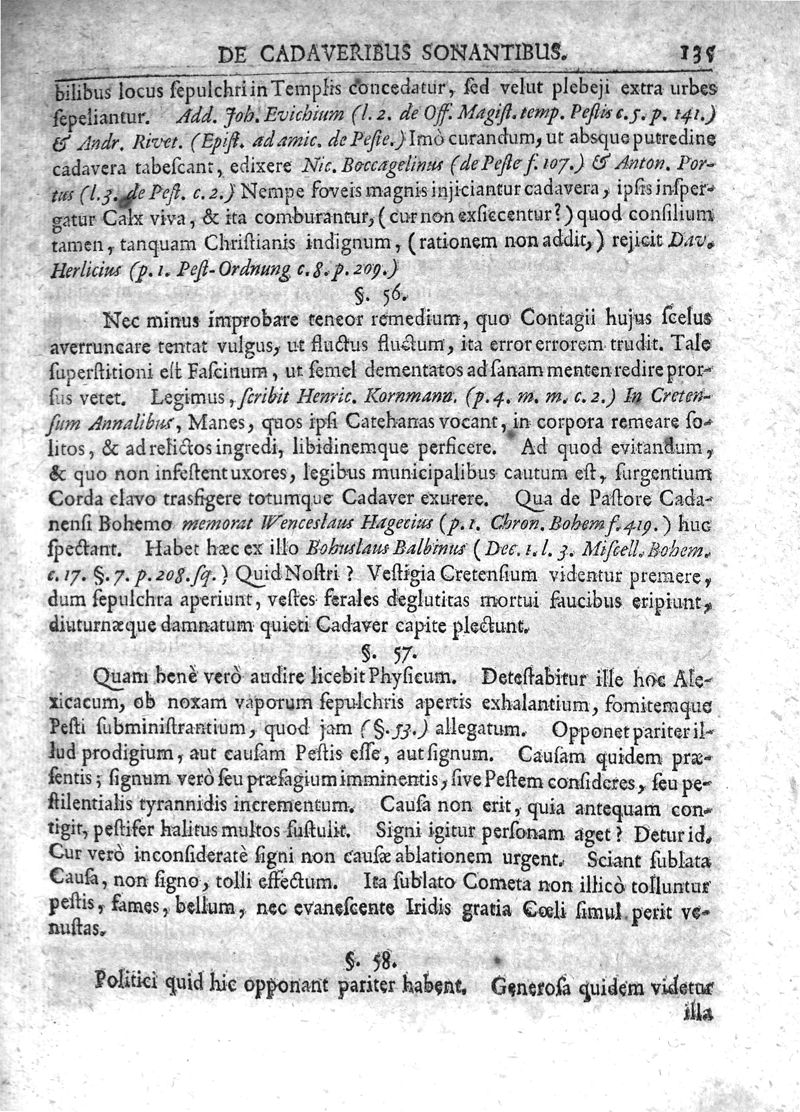 DE CADAVERIBUS SONANTIBUS. 135
bilibus locus ſepulchri in Templis concedatur, ſed velut plebeji extra urbes
ſepeliantur. Add. Joh. Evichium (l. 2. de Off. Magiſt. temp. Peſtis c. 5. p. 141.)
& Andr. Rivet. (Epiſt. ad amic. de Peſte.) Imò curandum, ut absque putredine
cadavera tabeſcant, edixere Nic. Boccagelinus (de Peſte f. 107.) & Anton. Por-
tus (l. 3. de Peſt. c. 2.) Nempe foveis magnis injiciantur cadavera, ipſis inſper-
gatur Calx viva, & ita comburantur, (cur non exſiccentur?) quod conſilium
tamen, tanquam Chriſtianis indignum, (rationem non addit,) rejicit Dav.
Herlicius (p. 1. Peſt-Ordnung c. 8. p. 209.)
§. 56.
Nec minus improbare teneor remedium, quo Contagii hujus ſcelus
averruncare tentat vulgus, ut fluctus fluctum, ita error errorem trudit. Tale
ſuperſtitioni eſt Faſcinum, ut ſemel dementatos ad ſanam menten redire pror-
ſus vetet. Legimus, ſcribit Henric. Kornmann. (p. 4. m. m. c. 2.) In Creten-
ſum Annalibus, Manes, quos ipſi Catehanas vocant, in corpora remeare ſo-
litos, & ad relictos ingredi, libidinemque perficere. Ad quod evitandum,
& quo non infeſtent uxores, legibus municipalibus cautum eſt, ſurgentium
Corda clavo trasfigere totumque Cadaver exurere. Qua de Paſtore Cada-
nenſi Bohemo memorat Wenceslaus Hagecius (p. 1. Chron. Bohem f. 419.) huc
ſpectant. Habet hæc ex illo Bohuslaus Balbinus (Dec. 1. l. 3. Miſcell. Bohem.
c. 17. §. 7. p. 208. ſq.) Quid Noſtri? Veſtigia Cretenſium videntur premere,
dum ſepulchra aperiunt, veſtes ferales deglutitas mortui faucibus eripiunt,
diuturnæque damnatum quieti Cadaver capite plectunt.
§. 57.
Quam benè verò audire licebit Phyſicum. Deteſtabitur ille hoc Ale-
xicacum, ob noxam vaporum ſepulchris apertis exhalantium, fomitemque
Peſti ſubminiſtrantium, quod jam (§. 53.) allegatum. Opponet pariter il-
lud prodigium, aut cauſam Peſtis eſſe, aut ſignum. Cauſam quidem præ-
ſentis; ſignum verò ſeu præſagium imminentis, ſive Peſtem conſideres, ſeu pe-
ſtilentialis tyrannidis incrementum. Cauſa non erit, quia antequam con-
tigit, peſtifer halitus multos ſuſtulit. Signi igitur perſonam aget? Detur id.
Cur verò inconſideratè ſigni non cauſæ ablationem urgent. Sciant ſublata
Cauſa, non ſigno, tolli effectum. Ita ſublato Cometa non illicò tolluntur
peſtis, fames, bellum, nec evaneſcente Iridis gratia Cœli ſimul perit ve-
nuſtas.
§. 58.
Politici quid hic opponant pariter habent. Generoſa quidem videtur
illa